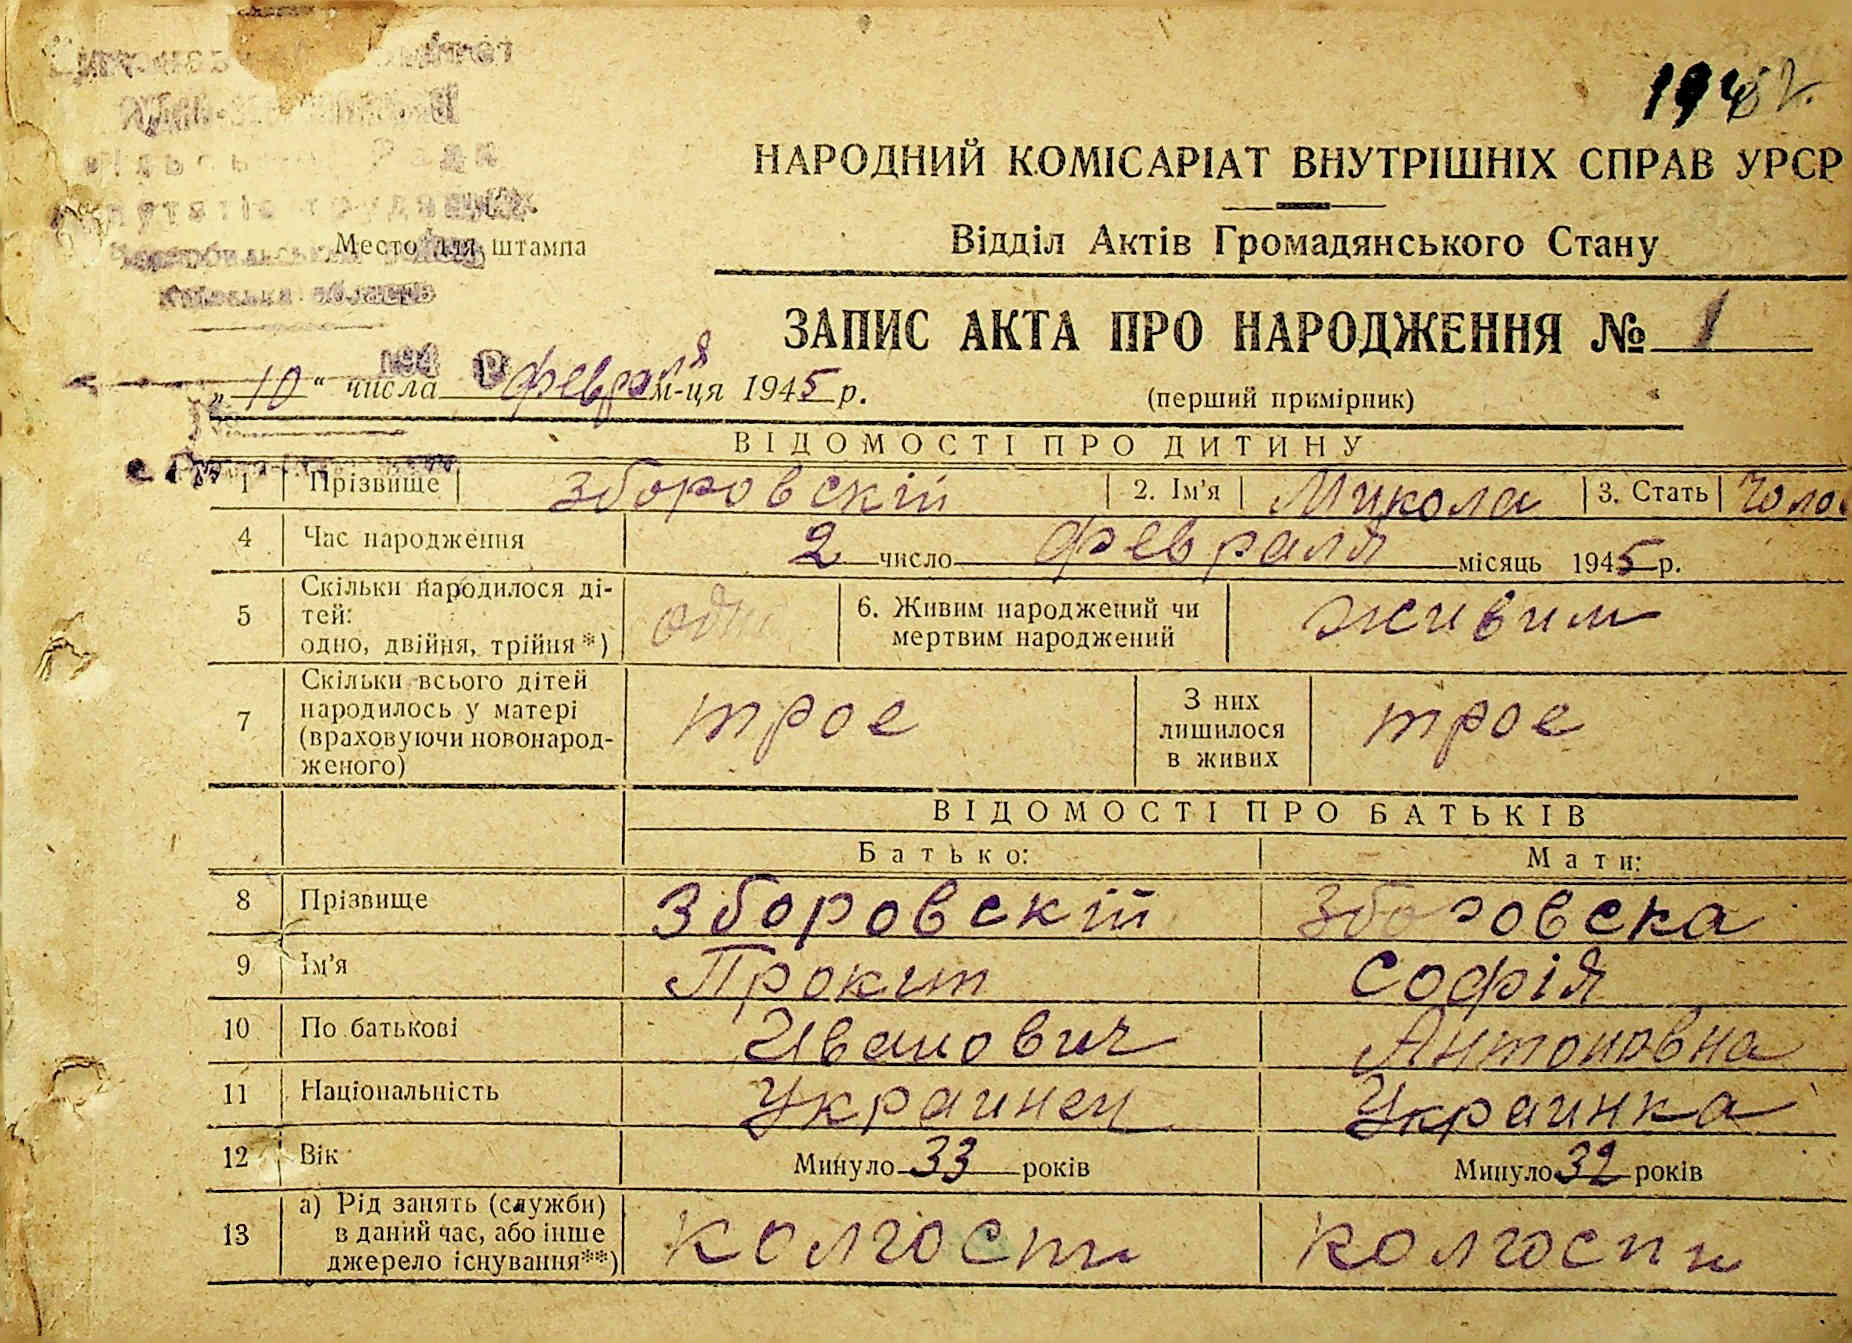 НАРОДНИЙ КОМІСАРІАТ ВНУТРІШНІХ СПРАВ УРСР
Відділ Актів Громадянського Стану
Место для штампа
ЗАПИС АКТА ПРО НАРОДЖЕННЯ № 1
„ 10 “ числа февраля м-ця 1945 р.
(перший примірник)
ВІДОМОСТІ ПРО ДИТИНУ
1 Прізвище Зборовскій 2. Ім'я Микола 3. Стать Чоло
4 Час народження 2 число февраля місяць 1945 р.
5 Скільки народилося ді-
тей:
одно, двійня, трійня*)
6. Живим народжений чи
мертвим народжений
живим
7 Скільки всього дітей
народилось у матері
(враховуючи новонарод-
женого)
трое
З них
лишилося
в живих
трое
ВІДОМОСТІ ПРО БАТЬКІВ
Батько: Мати:
8 Прізвище Зборовскій Зборовска
9 Ім'я Прокіп Софія
10 По батькові Иванович Антоновна
11 Національність Украинец Украинка
12 Вік Минуло 33 років Минуло 32 років
13 а) Рід занять (служби)
в даний час, або інше
джерело існування**)
колгосп колгосп